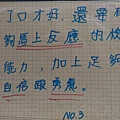 了口才好,還要有
夠馬上反應的快
能力,加上足夠
自信跟勇氣。
NO.3